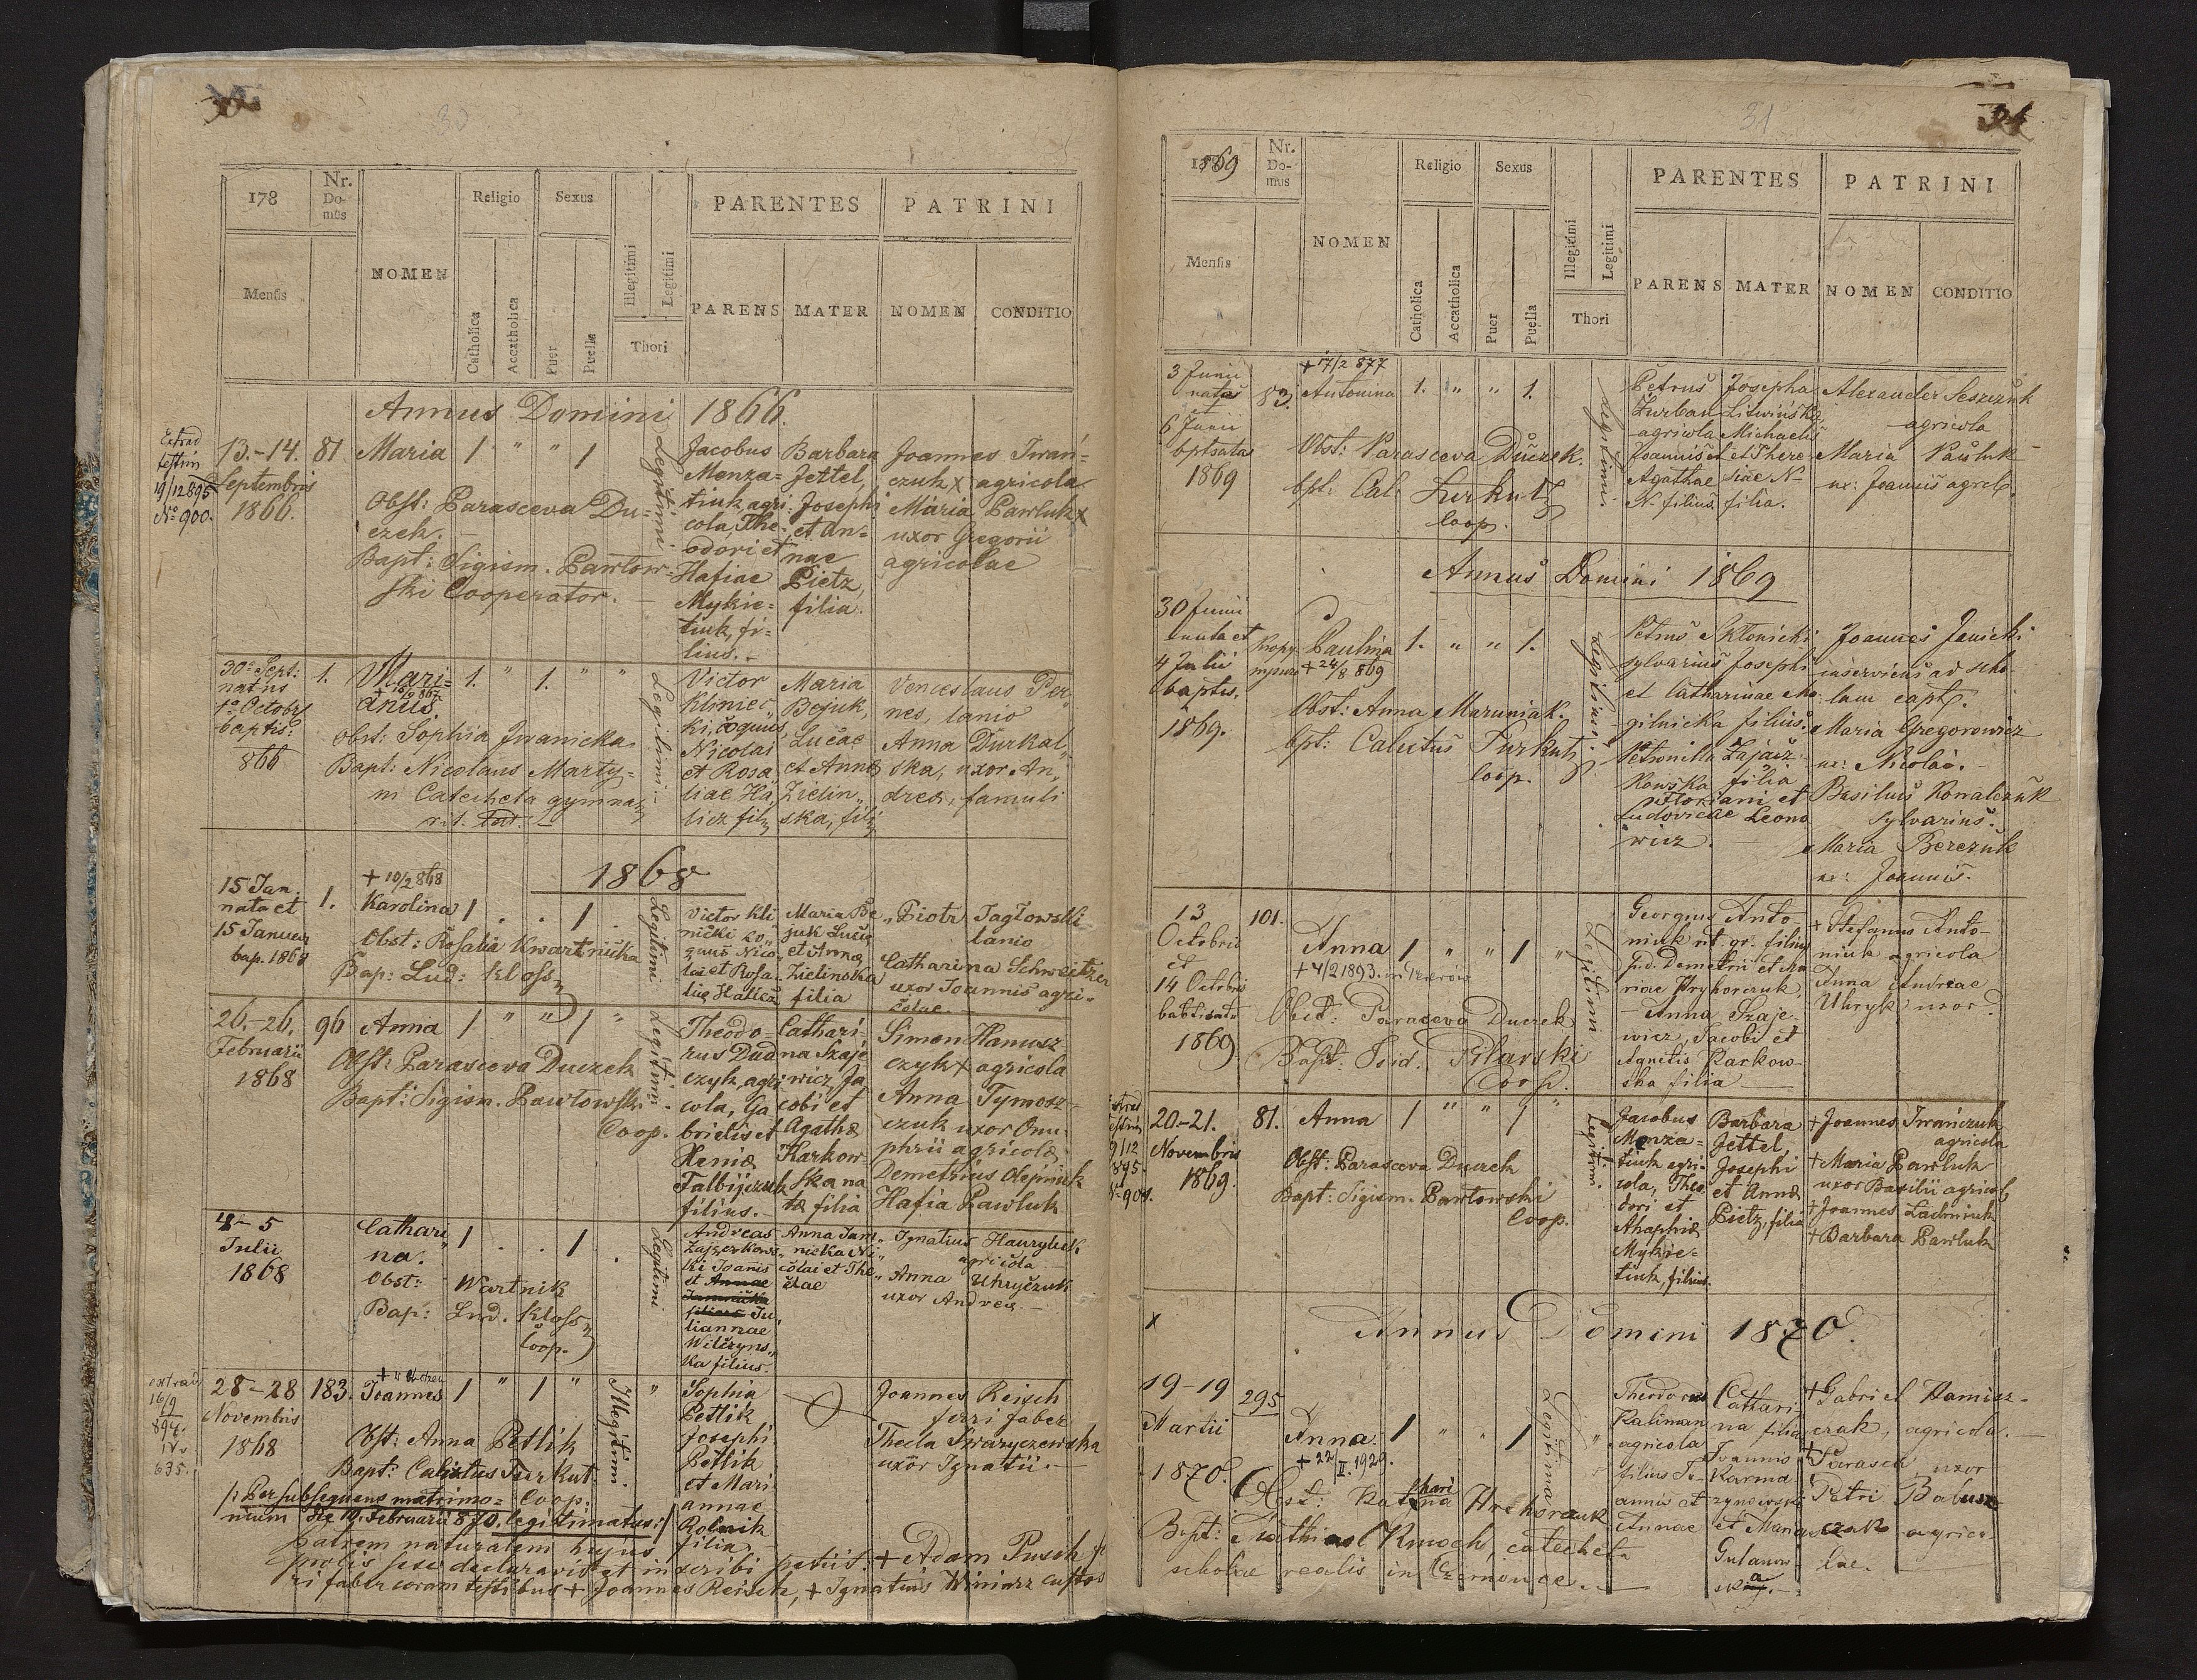 30
178
Nr. Domus
NOMEN
Religio
Sexus
PARENTES
PATRINI
Mensis
Catholica
Accatholica
Puer
Puella
Illegitimi
Legitimi
Thori
PARENS
MATER
NOMEN
CONDITIO
Annus Domini 1866.
Extrad
testim
19/12 895
No 900.
13.-14.
Septembris
1866.
81
Maria
1 " " 1
Obst: Parasceva Du=
czek.
Bapt: Sigism. Pawłow=
ski Cooperator.
Legitimi
Jacobus
Monza=
tiuk agri=
cola, The=
odori et
Hafiae
Mykie=
tiuk, fi=
lius.
Barbara
Jettel,
Josephi
et An=
nae
Pietz,
filia.
Joannes Iwań=
czuk x agricola
Maria Pawluk x
uxor Gregorii
agricolae
30a Sept:
natus
1a Octobr
baptis:
866
1.
Mari=
anus
+ 18/9 867.
1. " 1. " "
Obst: Sophia Iwanicka
Bapt: Nicolaus Marty=
ni Catecheta gymnas
r. l.
Legitimi
Victor
Kliniec
ki, coquus,
Nicolai
et Rosa
liae Ha
licz fil
Maria
Bejuk,
Lucae
et Annae
Zielin
ska, fil
Venceslaus Per
nes, lanio
Anna Durkal
ska, uxor An
dreae, famuli
1868
15 Jan.
nata et
15 Januar
bap. 1868
1.
+ 10/2 868
Karolina
1 . . 1 .
Obst: Rosalia Kwartnicka
Bap: Lud: Kloss
Legitimi
Victor Kli
nicki co
quus Nico
lai et Rosa
liae Halicz
Maria Be
juk Lucae
et Anna
Zielinska
filia
Piotr Jagłowski
lanio
Catharina Schweitzer
uxor Joannis agri=
colae
26.-26.
Februarii
1868
96
Anna
1 " " 1 "
Obst: Parasceva Duczek
Bapt: Sigism. Pawłowski
Coop.
Legitimi
Theodo
rus Dud
czyk, agri
cola, Ga
brielis et
Xeniae
Falbijczuk
filius.
Cathari=
na Szaje
wicz, Ja
cobi et
Agathae
Karkow=
ska na
ta filia
Simon Hanusz
czyk x agricola
Anna Tymosz=
czuk uxor Onu
phrii agricolae
Demetrius Olejniuk
Hafia Pawluk
4-5
Julii
1868
Cathari
na.
1 . . 1 .
Obst: Wartnik
Bap: Lud. Kloss
Coop.
Legitimi
Andreas
Zajączkows
ki Joanis
et Annae
filius Ju
liannae
Wilczyns
ka filius.
Anna Jam
nicka Ni
colai et The
clae
Ignatius Hauryluk
agricola
Anna Uhryczuk
uxor Andreae
extrad
16/9
894.
635.
28-28
Novembris
1868
183.
Joannes
1 " 1 " "
Obst: Anna Petlik
Bapt: Calixtus Turkut.
Coop.
Illegitimi.
Sophia
Petlik
Josephi
Petlik
et Mari
annae
Rolnik
filia
Joannes Reisch
ferri faber
Thecla Szwaryczewska
uxor Ignatii.
/: Per subsequens matrimo=
nium de 19. Februarii 870. legitimatus :/
Patrem naturalem hujus
prolis sese declaravit et inscribi petiit: + Adam Pusch fer
ri faber coram testibus + Joannes Reisch, + Ignatius Winiarz custos
31
1869
Nr. Domus
NOMEN
Religio
Sexus
PARENTES
PATRINI
Mensis
Catholica
Accatholica
Puer
Puella
Illegitimi
Legitimi
Thori
PARENS
MATER
NOMEN
CONDITIO
3 Junii
natas
et
6 Junii
bptsata
1869
83.
+ 17/2 877
Antonina
1. " " 1.
Obst: Parasceva Duczek.
bpt: Cal. Turkut
Coop.
Legitimi.
Petrus
Żurban
agricola
Joannis et
Agathae
N. filius.
Josepha
Litwinska
Michaelis
et There=
siae N-
filia.
Alexander Seszczuk
agricola
Maria Pauluk
ux: Joannis agrcl.
Annus Domini 1869
30 Junii
nata et
4 Julii
baptis.
1869.
Paulina
+ 24/8 869
1. " " 1.
Obst: Anna Maruniak.
bpt: Calixtus Turkut
Coop.
Legitimi.
Petrus Skłonicki
sylvarius Josephi
et Catharinae Mo
gilnicka filius.
Petronilla Zajacz
kowska filia
Floriani et
Ludovicae Leono
wicz.
Joannes Janicki
inserviens ad scho
lam capt.
Maria Gregorowicz
ux: Nicolai.
Basilius Kowalczuk
sylvarius.
Maria Berezuk
ux: Joannis.
13
Octobris
et
14 Octobris
babtisata
1869
101.
Anna
1 " " 1 "
+ 4/2 1893.
Obst: Parasceva Duczek
Bapt: Isid. Pilawski
Coop.
Legitimi
Georgius Anto
niuk rit. gr. filius
Demetrii et Ma
riae Hryhorczuk,
Anna Szaje
wicz, Jacobi et
Agnetis Karkow
ska filia
+ Stefanus Anto
niuk agricola
Anna Andreae
Uhryk uxor
extrad
testim
19/12
895.
No 901.
20-21.
Novembris
1869.
81.
Anna
1 " " 1 "
Obst: Parasceva Duczek
Bapt: Sigism. Pawłowski
Coop.
Legitimi.
Jacobus
Monza=
tiuk agri=
cola, Theo
dori et
Ahaphiae
Mykie=
tiuk, filius.
Barbara
Jettel,
Josephi
et Annae
Pietz, filia
+ Joannes Iwańczuk
agricola
+ Maria Pawluk
uxor Basilii agricol
+ Joannes Ladniuk
+ Barbara Pawluk
x
Annus Domini 1870.
19-19
Martii
1870.
295
Anna.
1 " " 1 "
+ 22/II. 1929.
Obst: Kathari
na Hrehorczuk
Bapt: Mathias Kmoch, catecheta
scholae realis in Czernonce.
Legitima
Theodorus
Kaliman
agricola
filius Jo-
annis et
Annae
Cathari
na filia
Joannis
Karma
zynowski
et Marias
Gulanow-
ska.
+ Gabriel Hamisz-
czak, agricola.
+ Parasca, uxor
Petri Babusz
czak agrico
lae.